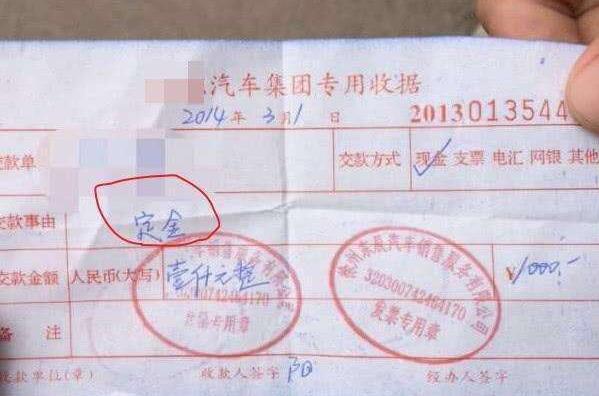 汽车集团专用收据
2014 年 3 月 1 2013013544
交款单 交款方式 现金 支票 电汇 网银 其他
交款事由 定金
交款金额 人民币(大写) 壹仟元整 ¥1000.-
备注
收款单位(章) 收款人签字 阳 经办人签字
汽车销售服务有限公司
320300742464170
发票专用章
徐州东辰汽车销售服务有限公司
320300742464170
发票专用章